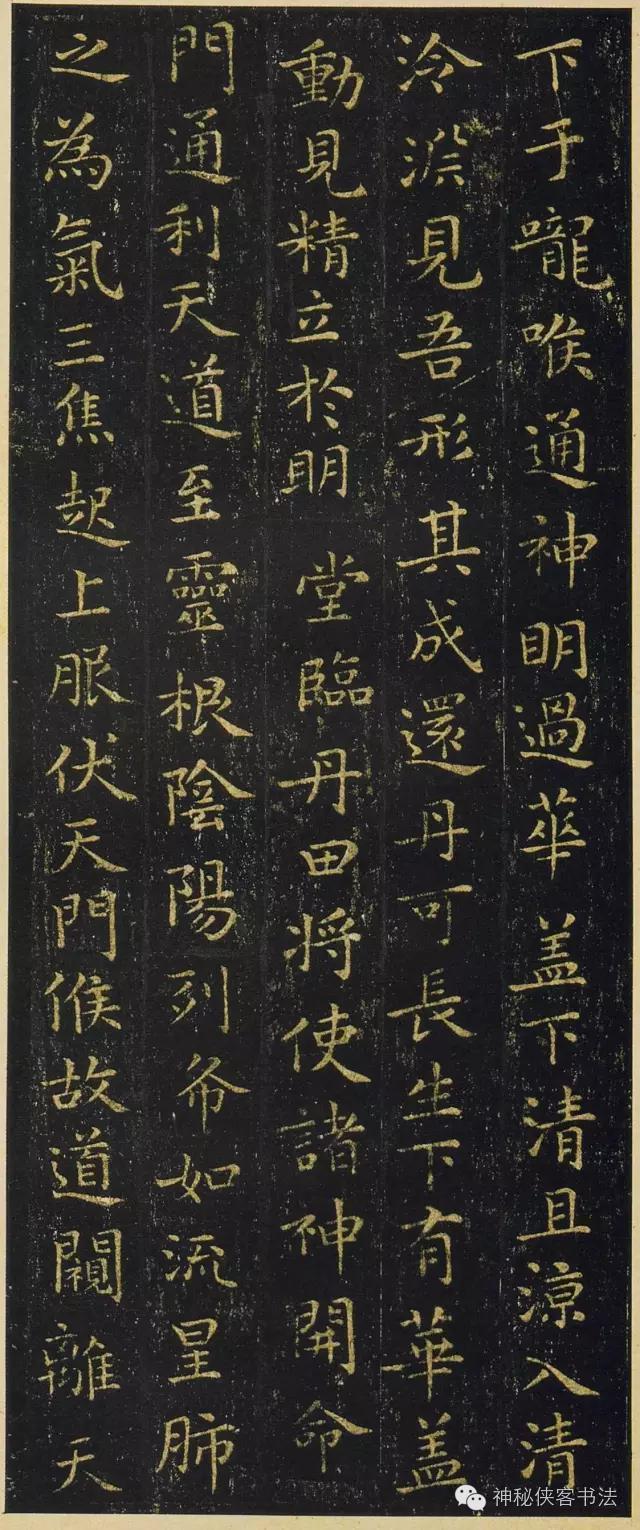 下于嚨喉通神明過華盖下清且涼入清
泠淵見吾形其成還丹可長生下有華盖
動見精立於明堂臨丹田将使諸神開命
門通利天道至靈根陰陽列布如流星肺
之為氣三焦起上服伏天門候故道闚離天
神秘侠客书法